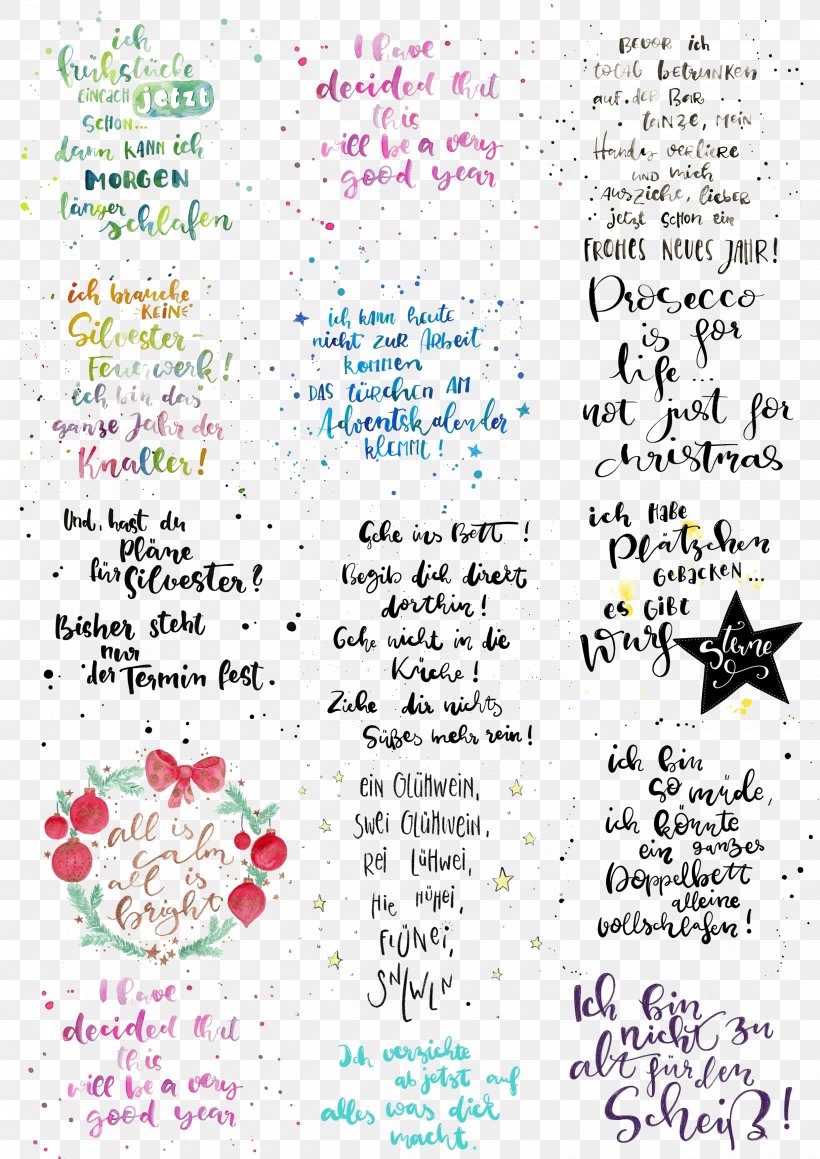 ich
frühstücke
EINFACH jetzt
SCHON...
dann KANN ich
MORGEN
länger
schlafen
I have
decided that
this
will be a very
good year
BEVOR ich
total betrunken
auf der BAR
TANZE, MEIN
Handy verliere
UND mich
Ausziehe, lieber
jetzt schon ein
FROHES NEUES JAHR!
ich brauche
KEIN
Silvester-
Feuerwerk!
ich bin das
ganze Jahr der
Knaller!
ich kann heute
nicht zur Arbeit
kommen
DAS TÜRCHEN AM
Adventskalender
KLEMMT!
Prosecco
is for
life...
not just for
christmas
Und, hast du
Pläne
für Silvester?
Bisher steht
nur
der Termin fest.
Gehe ins Bett!
Begib dich direkt
dorthin!
Gehe nicht in die
Küche!
Ziehe dir nichts
Süßes mehr rein!
ich HABE
Plätzchen
GEBACKEN...
es GIBT
Wurf
Sterne
all is
calm
all is
bright
ein GLÜHWEIN,
SWEI GLÜHWEIN,
REI LÜHWEI,
HIE HÜHEI,
FLÜNEI,
SNLWLN
ich bin
so müde,
ich könnte
ein ganzes
Doppelbett
alleine
vollschlafen!
I have
decided that
this
will be a very
good year
Ich verzichte
ab jetzt auf
alles was dick
macht.
Ich bin
nicht zu
alt für den
Scheiß!